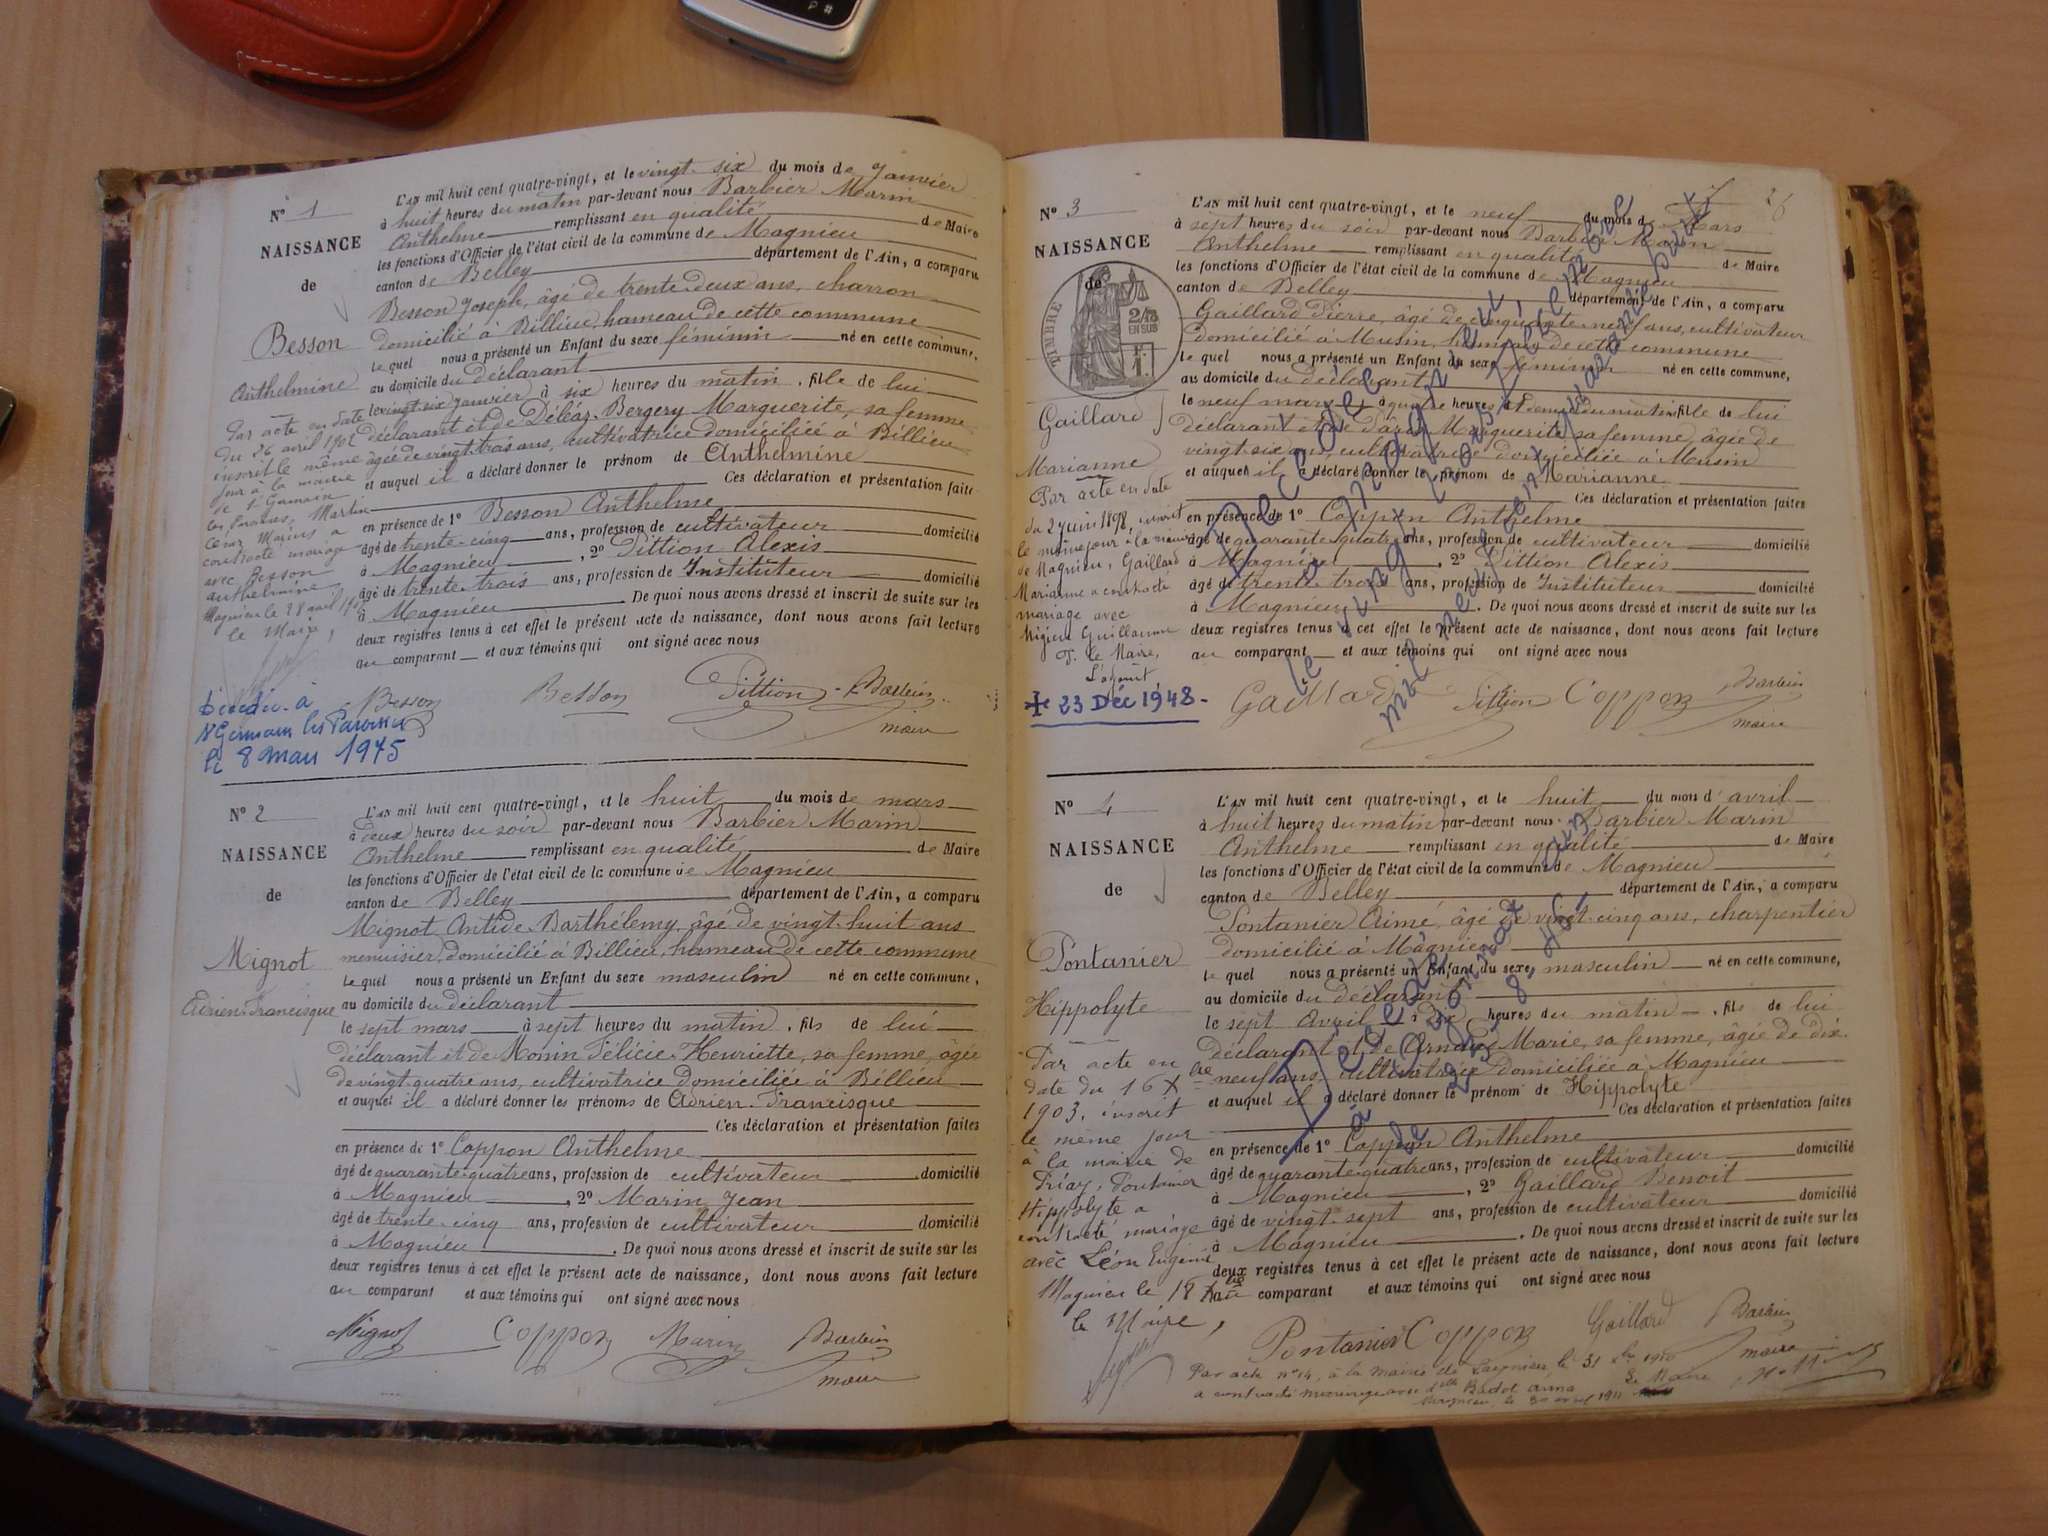 N° 1
NAISSANCE
de
Besson
Anthelmine
Par acte en date
du 26 avril 1902
inscrit le même
jour à la mairie
de St Germain
les Paroisses, Martin
César Marius a
contracté mariage
avec Besson
Anthelmine
Magnieu le 28 avril
le Maire,
décédée à
St Germain les Paroisses
le 8 mars 1975
L'AN mil huit cent quatre-vingt, et le vingt six du mois de Janvier
à huit heures du matin par-devant nous Barbier Marin
Anthelme remplissant en qualité de Maire
les fonctions d'Officier de l'état civil de la commune de Magnieu
canton de Belley département de l'Ain, a comparu
Besson Joseph, âgé de trente deux ans, charron
domicilié à Billieu, hameau de cette commune
Le quel nous a présenté un Enfant du sexe féminin né en cette commune,
au domicile du déclarant
le vingt-six janvier à six heures du matin, fille de lui
déclarant et de Déléaz-Bergery Marguerite, sa femme
âgée de vingt trois ans, cultivatrice domiciliée à Billieu
et auquel il a déclaré donner le prénom de Anthelmine
Ces déclaration et présentation faites
en présence de 1° Besson Anthelme
âgé de trente-cinq ans, profession de cultivateur domicilié
à Magnieu, 2° Pittion Alexis
âgé de trente-trois ans, profession de Instituteur domicilié
à Magnieu. De quoi nous avons dressé et inscrit de suite sur les
deux registres tenus à cet effet le présent acte de naissance, dont nous avons fait lecture
au comparant et aux témoins qui ont signé avec nous
Besson Besson Pittion Barbier
maire
N° 2
NAISSANCE
de
Mignot
Adrien-Francisque
L'AN mil huit cent quatre-vingt, et le huit du mois de mars
à deux heures du soir par-devant nous Barbier Marin
Anthelme remplissant en qualité de Maire
les fonctions d'Officier de l'état civil de la commune de Magnieu
canton de Belley département de l'Ain, a comparu
Mignot Antide-Barthélemy, âgé de vingt-huit ans
menuisier, domicilié à Billieu, hameau de cette commune
Le quel nous a présenté un Enfant du sexe masculin né en cette commune,
au domicile du déclarant
le sept mars à sept heures du matin, fils de lui
déclarant et de Monin Félicie-Henriette, sa femme, âgée
de vingt-quatre ans, cultivatrice domiciliée à Billieu
et auquel il a déclaré donner les prénoms de Adrien-Francisque
Ces déclaration et présentation faites
en présence de 1° Coppon Anthelme
âgé de quarante-quatre ans, profession de cultivateur domicilié
à Magnieu, 2° Marin Jean
âgé de trente-cinq ans, profession de cultivateur domicilié
à Magnieu. De quoi nous avons dressé et inscrit de suite sur les
deux registres tenus à cet effet le présent acte de naissance, dont nous avons fait lecture
au comparant et aux témoins qui ont signé avec nous
Mignot Coppon Marin Barbier
maire
26
N° 3
NAISSANCE
de
TIMBRE
2/10
EN SUS
F.
1.
Gaillard
Marianne
Par acte en date
du 2 juin 1898, inscrit
le même jour à la mairie
de Magnieu, Gaillard
Marianne a contracté
mariage avec
Guillaume
P. le Maire,
L'adjoint
+ 23 Déc 1948-
L'AN mil huit cent quatre-vingt, et le neuf du mois de Mars
à sept heures du soir par-devant nous Barbier Marin
Anthelme remplissant en qualité de Maire
les fonctions d'Officier de l'état civil de la commune de Magnieu
canton de Belley département de l'Ain, a comparu
Gaillard Pierre, âgé de cinquante-neuf ans, cultivateur
domicilié à Musin, hameau de cette commune
Le quel nous a présenté un Enfant du sexe féminin né en cette commune,
au domicile du déclarant
le neuf mars à quatre heures et demi du matin fille de lui
déclarant et de Marguerite, sa femme, âgée de
vingt-six ans, cultivatrice domiciliée à Musin
et auquel il a déclaré donner le prénom de Marianne
Ces déclaration et présentation faites
en présence de 1° Coppon Anthelme
âgé de quarante-quatre ans, profession de cultivateur domicilié
à Magnieu, 2° Pittion Alexis
âgé de trente-trois ans, profession de Instituteur domicilié
à Magnieu. De quoi nous avons dressé et inscrit de suite sur les
deux registres tenus à cet effet le présent acte de naissance, dont nous avons fait lecture
au comparant et aux témoins qui ont signé avec nous
Gaillard Pittion Coppon Barbier
maire
Décédée
à Magnieu,
le vingt trois Décembre
mil neuf cent quarante huit
N° 4
NAISSANCE
de
Pontanier
Hippolyte
Par acte en
date du 16 Xbre
1903, inscrit
le même jour
à la mairie de
Priay, Pontanier
Hippolyte a
contracté mariage
avec Léon Eugénie
Magnieu le 18 Xbre
le Maire,
L'AN mil huit cent quatre-vingt, et le huit du mois d'avril
à huit heures du matin par-devant nous Barbier Marin
Anthelme remplissant en qualité de Maire
les fonctions d'Officier de l'état civil de la commune de Magnieu
canton de Belley département de l'Ain, a comparu
Pontanier Aimé, âgé de vingt-cinq ans, charpentier
domicilié à Magnieu
Le quel nous a présenté un Enfant du sexe masculin né en cette commune,
au domicile du déclarant
le sept Avril à dix heures du matin, fils de lui
déclarant et de Marie, sa femme, âgée de dix-
neuf ans, cultivatrice domiciliée à Magnieu
et auquel il a déclaré donner le prénom de Hippolyte
Ces déclaration et présentation faites
en présence de 1° Coppon Anthelme
âgé de quarante-quatre ans, profession de cultivateur domicilié
à Magnieu, 2° Gaillard Benoit
âgé de vingt-sept ans, profession de cultivateur domicilié
à Magnieu. De quoi nous avons dressé et inscrit de suite sur les
deux registres tenus à cet effet le présent acte de naissance, dont nous avons fait lecture
au comparant et aux témoins qui ont signé avec nous
Pontanier Coppon Gaillard Barbier
maire
Par acte n° 14, à la mairie de Lagnieu, le 31 Xbre 1910
a contracté mariage avec Delle Badot Anna
Magnieu, le 30 avril 1911 Le Maire
Décédé
à